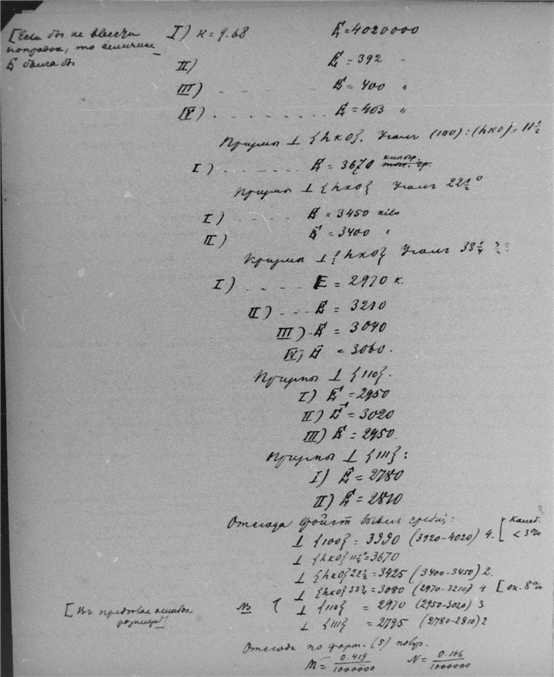 [Если бы не ввести
поправок, то величина
E была бы
I) κ = 9.68 E = 4020000
II) E = 392 "
III) . . . . . E = 400 "
IV) . . . . . E = 403 "
Призмы ⊥ {hko}. Уголъ (100):(hko) = 11½
I) . . . . . E = 3670 килогр.
Призмы ⊥ {hko} Уголъ 22½°
I) . . . . . E = 3450 kilo
II) E = 3400 "
Призмы ⊥ {hko} Уголъ 33¾
I) . . . . . E = 2970 к.
II) . . . E = 3210
III) . E = 3040
IV) E = 3060.
Призмы ⊥ {110}.
I) E = 2950
II) E = 3020
III) E = 2950.
Призмы ⊥ {111}:
I) E = 2780
II) E = 2810
Отсюда Фойгт вывел средн:
⊥ {100} = 3990 (3920-4020) 4. [Колеб. < 3%
⊥ {hko} 11½ = 3670
⊥ {hko} 22½ = 3425 (3400-3450) 2.
⊥ {hko} 33¾ = 3080 (2970-3210) 4 [ок. 8%
⊥ {110} = 2970 (2950-3020) 3
⊥ {111} = 2795 (2780-2810) 2
[Въ пределах ошибок
Отсюда по форм. (5) получ.
M = 0.419/1000000 N =